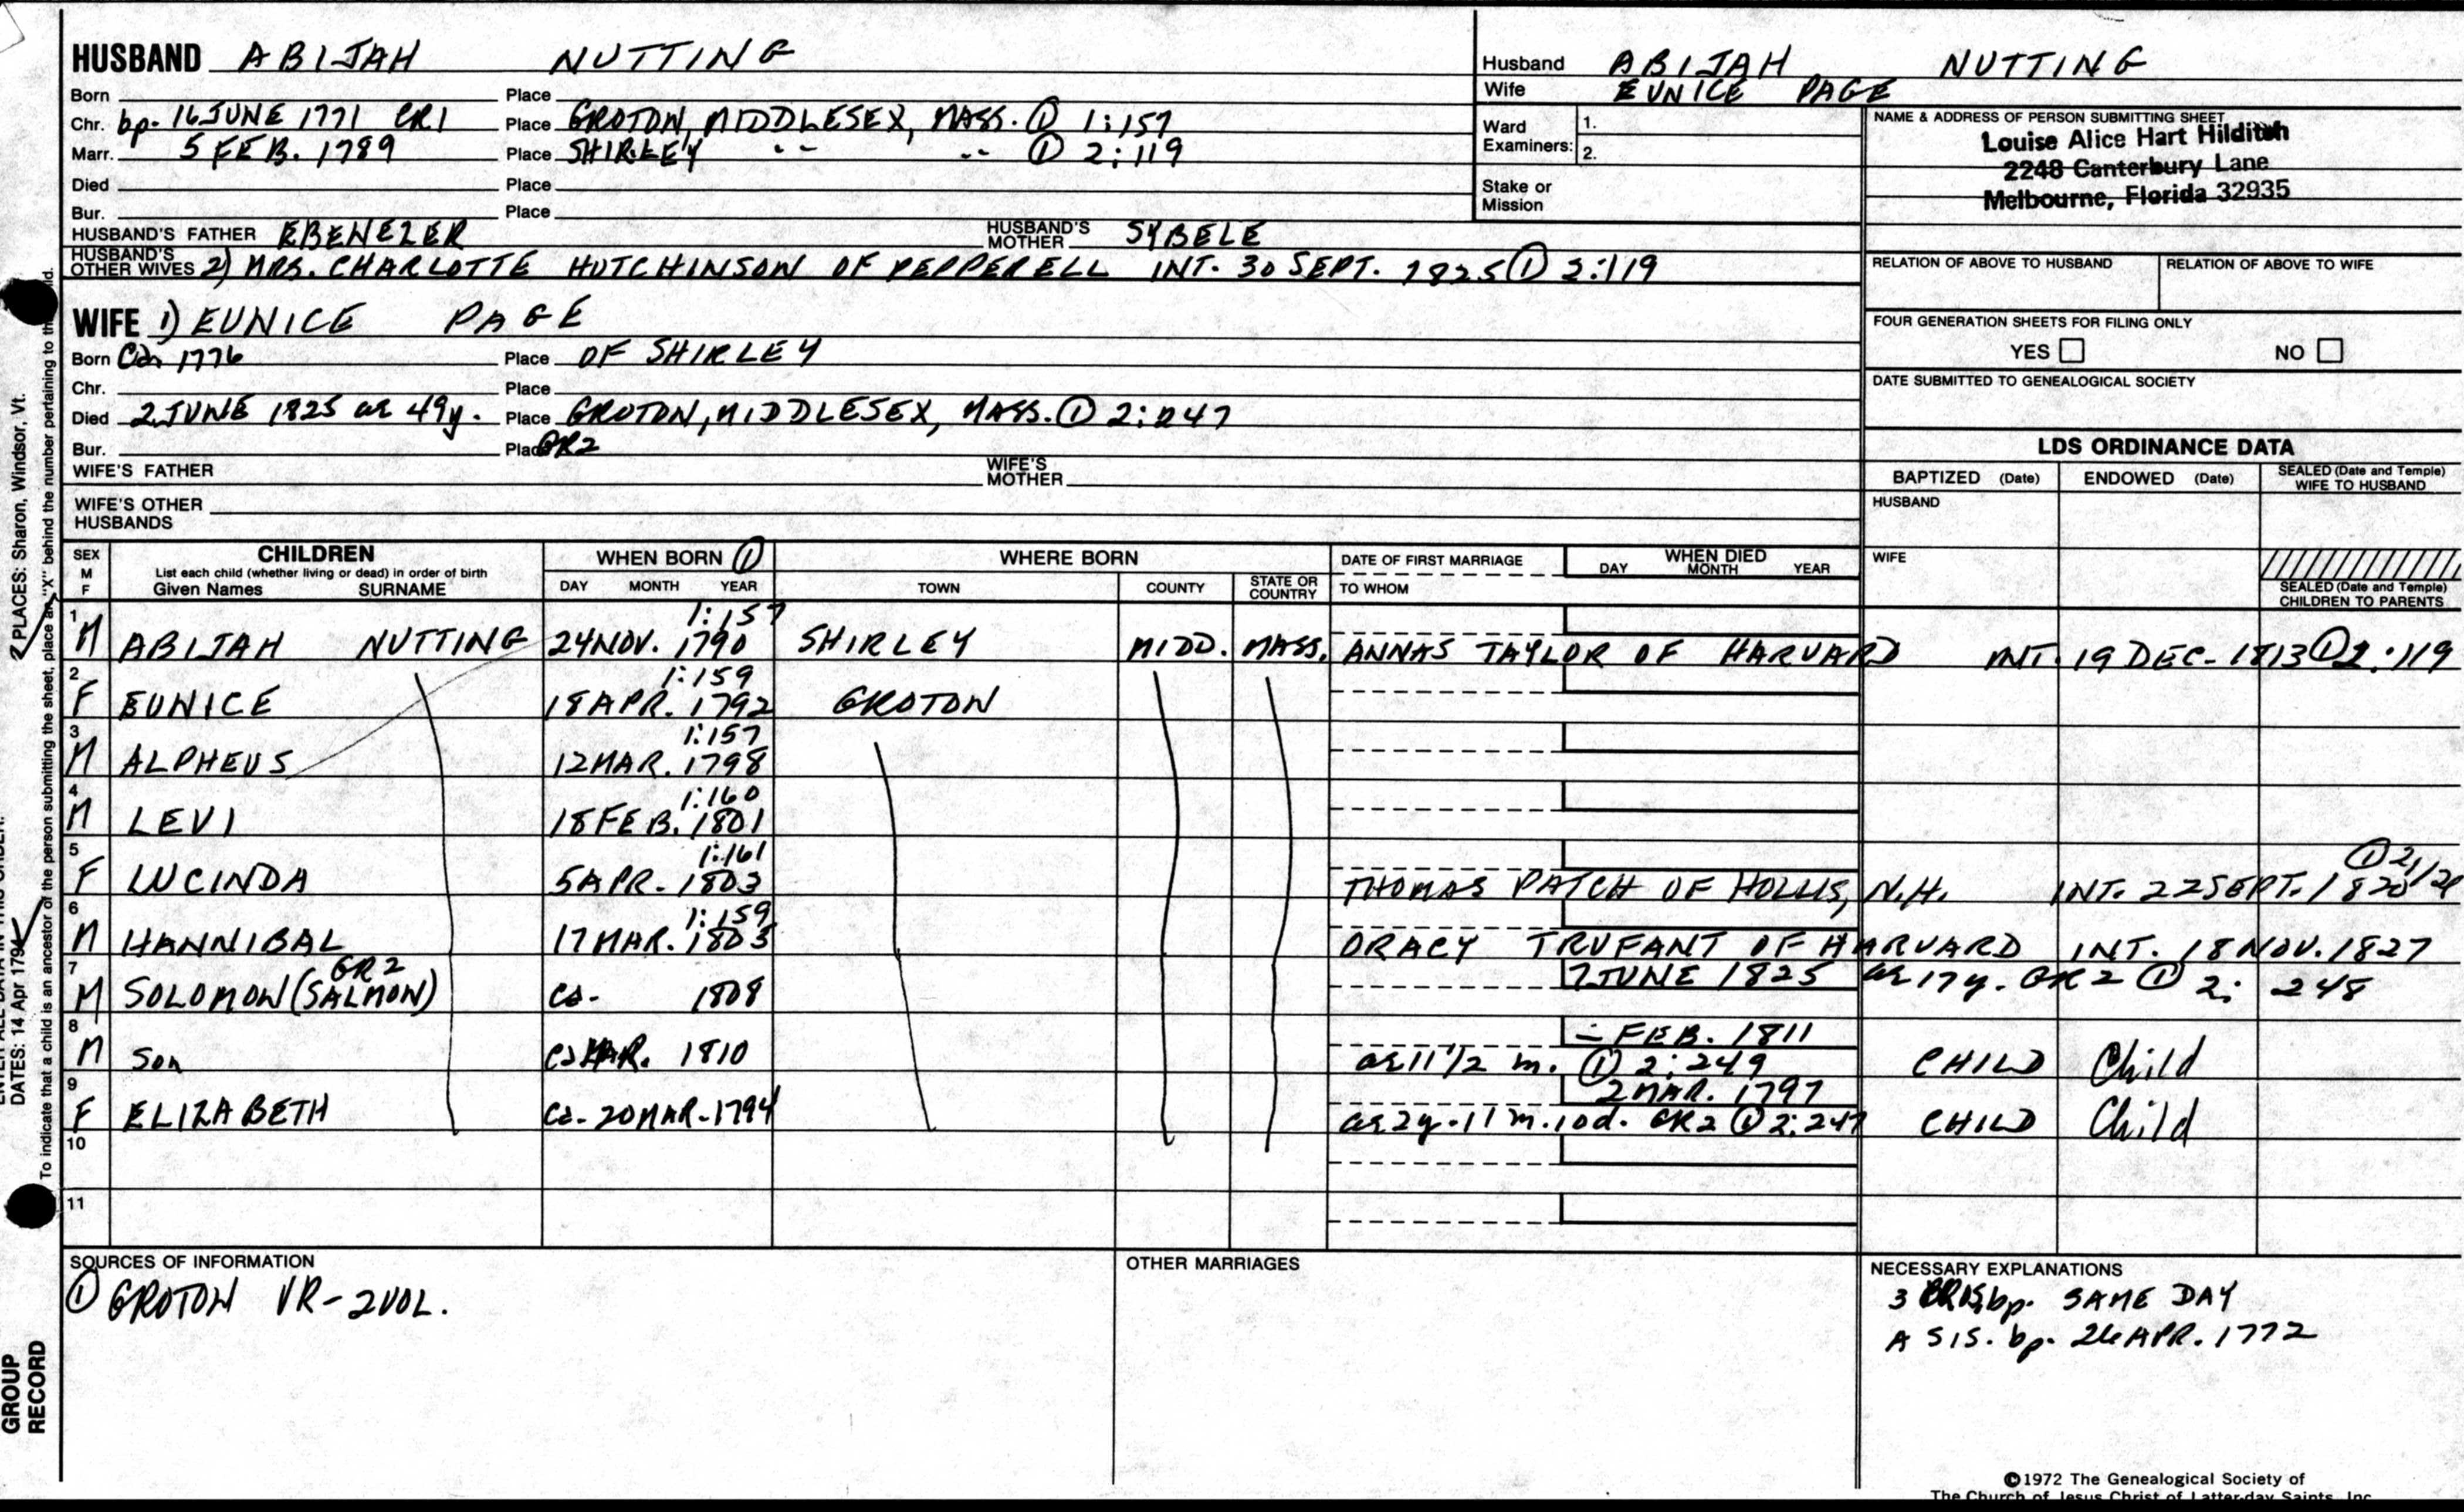 HUSBAND ABIJAH NUTTING
Born Place
Chr. bp. 16 JUNE 1771 CR1 Place GROTON, MIDDLESEX, MASS. ① 1:157
Marr. 5 FEB. 1789 Place SHIRLEY " " ① 2:119
Died Place
Bur. Place
HUSBAND'S FATHER EBENEZER HUSBAND'S MOTHER SYBELE
HUSBAND'S OTHER WIVES 2) MRS. CHARLOTTE HUTCHINSON OF PEPPERELL INT. 30 SEPT. 1825 ① 2:119
WIFE 1) EUNICE PAGE
Born Ca. 1776 Place OF SHIRLEY
Chr. Place
Died 2 JUNE 1825 ae 49y. Place GROTON, MIDDLESEX, MASS. ① 2:247
Bur. Place GR2
WIFE'S FATHER WIFE'S MOTHER
WIFE'S OTHER HUSBANDS
Husband ABIJAH NUTTING
Wife EUNICE PAGE
Ward Examiners: 1.
2.
Stake or Mission
NAME & ADDRESS OF PERSON SUBMITTING SHEET
Louise Alice Hart Hilditch
2248 Canterbury Lane
Melbourne, Florida 32935
RELATION OF ABOVE TO HUSBAND RELATION OF ABOVE TO WIFE
FOUR GENERATION SHEETS FOR FILING ONLY
YES NO
DATE SUBMITTED TO GENEALOGICAL SOCIETY
LDS ORDINANCE DATA
BAPTIZED (Date) ENDOWED (Date) SEALED (Date and Temple) WIFE TO HUSBAND
HUSBAND
WIFE
SEALED (Date and Temple) CHILDREN TO PARENTS
SEX M F CHILDREN WHEN BORN ① WHERE BORN DATE OF FIRST MARRIAGE WHEN DIED
List each child (whether living or dead) in order of birth
Given Names SURNAME DAY MONTH YEAR TOWN COUNTY STATE OR COUNTRY TO WHOM DAY MONTH YEAR
1:157
1 M ABIJAH NUTTING 24 NOV. 1790 SHIRLEY MIDD. MASS. ANNAS TAYLOR OF HARVARD INT. 19 DEC. 1813 ① 2:119
1:159
2 F EUNICE 18 APR. 1792 GROTON
1:157
3 M ALPHEUS 12 MAR. 1798
1:160
4 M LEVI 18 FEB. 1801
1:161
5 F LUCINDA 5 APR. 1803 THOMAS PATCH OF HOLLIS, N.H. INT. 22 SEPT. 1820
1:159
6 M HANNIBAL 17 MAR. 1803 DRACY TRUFANT OF HARVARD INT. 18 NOV. 1827
GR2
7 M SOLOMON (SALMON) ca. 1808 7 JUNE 1825 ae 17y. GR2 ① 2: 248
- FEB. 1811
8 M Son ca MAR. 1810 ae 11 1/2 m. ① 2:249 CHILD Child
2 MAR. 1797
9 F ELIZABETH ca. 20 MAR. 1794 ae 2y. 11 m. 10 d. GR2 ① 2:247 CHILD Child
10
11
SOURCES OF INFORMATION
① GROTON VR - 2 VOL.
OTHER MARRIAGES
NECESSARY EXPLANATIONS
3 bp. SAME DAY
A SIS. bp. 26 APR. 1772
©1972 The Genealogical Society of
The Church of Jesus Christ of Latter-day Saints, Inc.
DATES: 14 Apr 1794
PLACES: Sharon, Windsor, Vt.
To indicate that a child is an ancestor of the person submitting the sheet, place an "X" behind the number pertaining to
GROUP
RECORD